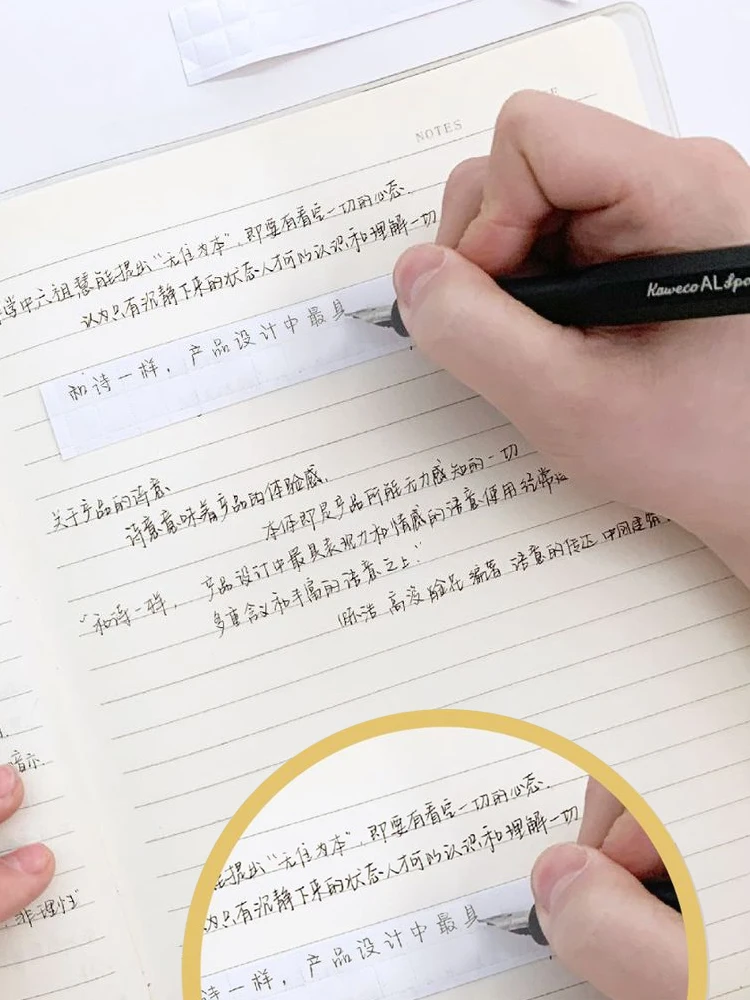 NOTES
学中六祖慧能提出“无住为本”,即要有看空一切的心态.
认为只有沉静下来的状态人才可以认识和理解一切
和诗一样，产品设计中最具
Kaweco AL Spo
关于产品的诗意
诗意意味着产品的体验感.
本体即是产品所能无力感知的一切
“和诗一样， 产品设计中最具表现力和情感的语意使用经常
多重含义和丰富的语意之上.”
陈浩 高波 编著 语意的传达 中国建筑
暗示
非理性
能提出“无住为本”,即要有看空一切的心态.
认为只有沉静下来的状态人才可以认识和理解一切
诗一样，产品设计中最具